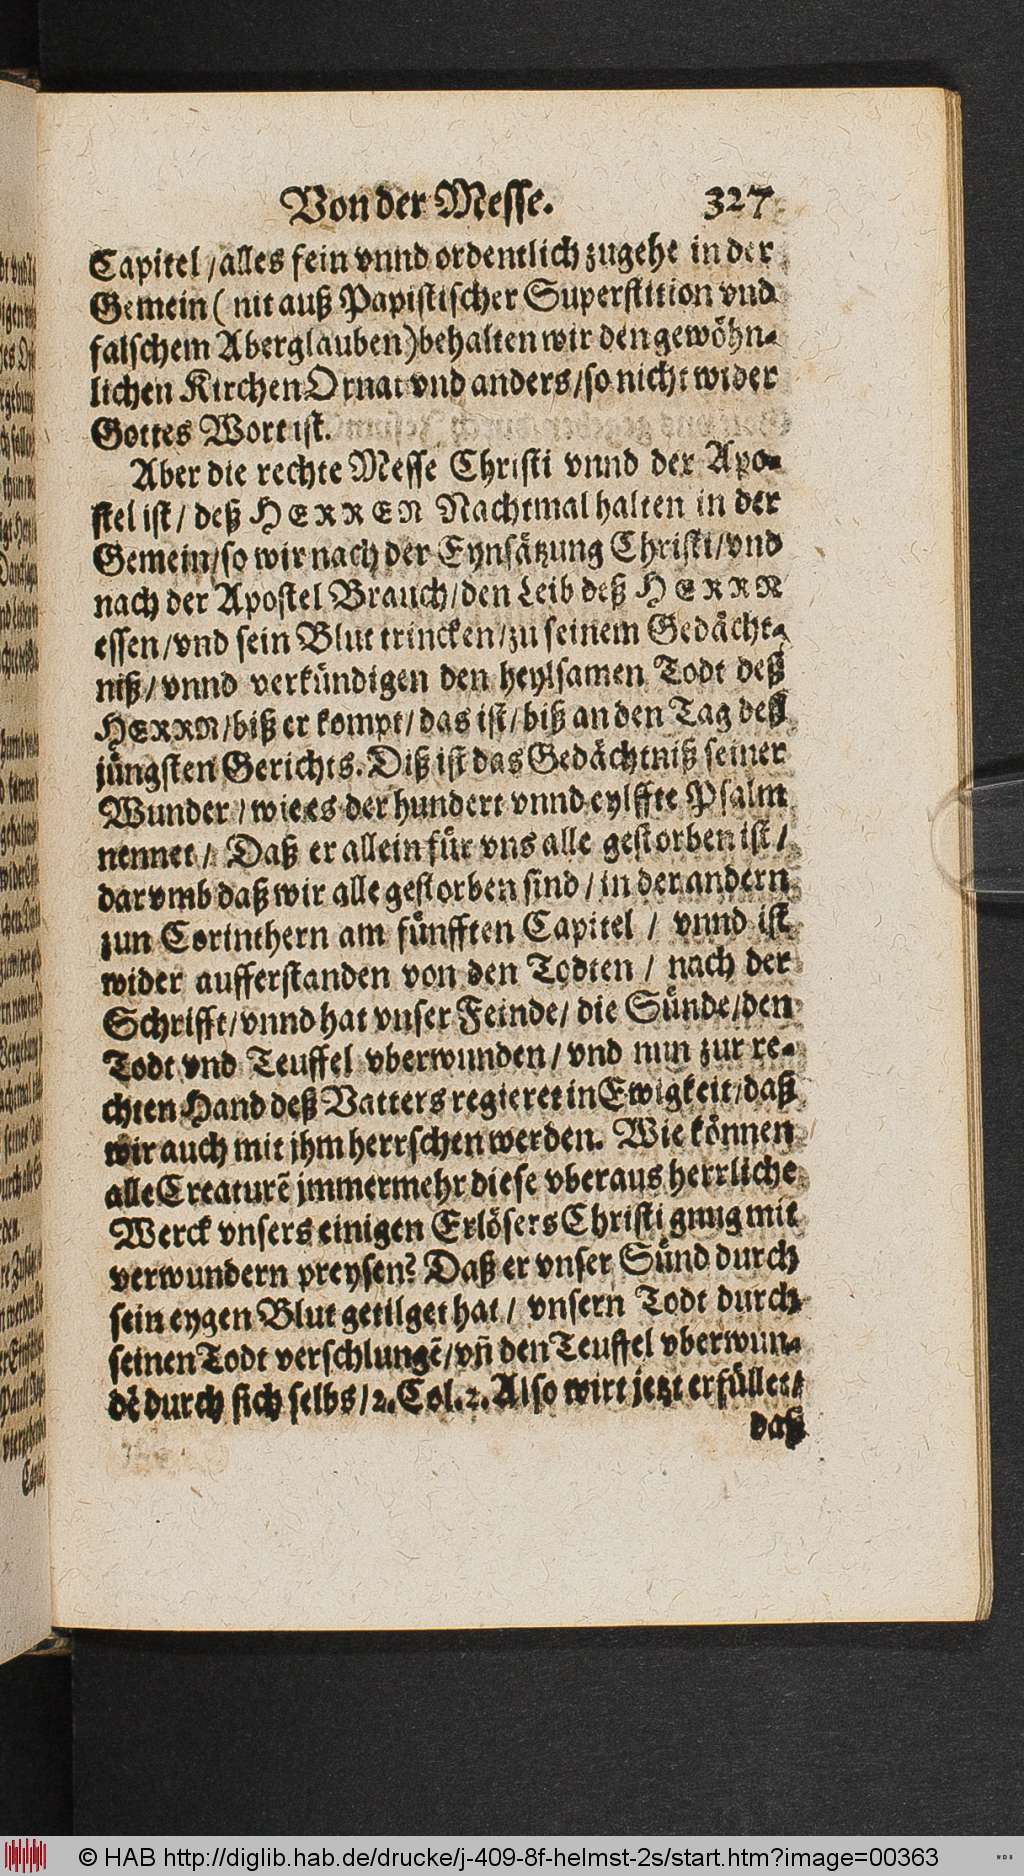 Von der Messe. 327
Capitel / alles fein vnnd ordentlich zugehe in der
Gemein ( nit auß Papistischer Superstition vnd
falschem Aberglauben) behalten wir den gewöhn-
lichen Kirchen Ornat vnd anders / so nicht wider
Gottes Wort ist.
Aber die rechte Messe Christi vnnd der Apo-
stel ist / deß HERREN Nachtmal halten in der
Gemein / so wir nach der Eynsätzung Christi / vnd
nach der Apostel Brauch / den Leib deß HERRN
essen / vnd sein Blut trincken / zu seinem Gedächt-
niß / vnnd verkündigen den heylsamen Todt deß
HERRN / biß er kompt / das ist / biß an den Tag deß
jüngsten Gerichts. Diß ist das Gedächtniß seiner
Wunder / wie es der hundert vnnd eylffte Psalm
nennet / Daß er allein für vns alle gestorben ist /
darvmb daß wir alle gestorben sind / in der andern
zun Corinthern am fünfften Capitel / vnnd ist
wider aufferstanden von den Todten / nach der
Schrifft / vnnd hat vnser Feinde / die Sünde / den
Todt vnd Teuffel vberwunden / vnd nun zur re-
chten Hand deß Vatters regieret in Ewigkeit / daß
wir auch mit jhm herrschen werden. Wie können
alle Creaturẽ jmmermehr diese vberaus herrliche
Werck vnsers einigen Erlösers Christi gnug mit
verwundern preysen? Daß er vnser Sünd durch
sein eygen Blut getilget hat / vnsern Todt durch
seinen Todt verschlungẽ / vñ den Teuffel vberwun-
dẽ durch sich selbs / 2. Col. 2. Also wirt jetzt erfüllet /
daß
© HAB http://diglib.hab.de/drucke/j-409-8f-helmst-2s/start.htm?image=00363